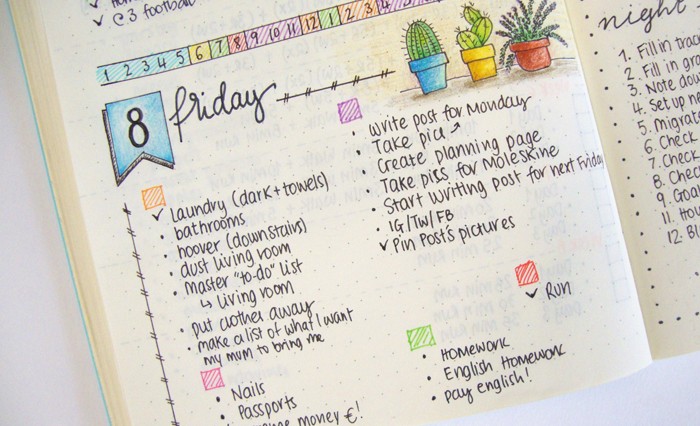 ✓ C3 football
1 2 3 4 5 6 7 8 9 10 11 12 1 2 3 4 5
8 friday
✓ Laundry (dark+towels)
• bathrooms
• hoover (downstairs)
• dust living room
• Master "to-do" list
↳ Living room
• put clothes away
• make a list of what I want
my mum to bring me
• Nails
• Passports
money €!
• write post for Monday
• Take pics ↗
• Create planning page
• Take pics for Moleskine
• Start writing post for next friday
• IG/TW/FB
✓ Pin Post's pictures
✓ Run
• Homework
• English Homework
• pay english!
night
1. Fill in
2. Fill in
3. Note
4. Set up
5.
6. Check
7. Check
8.
9.
10.
11.
12.